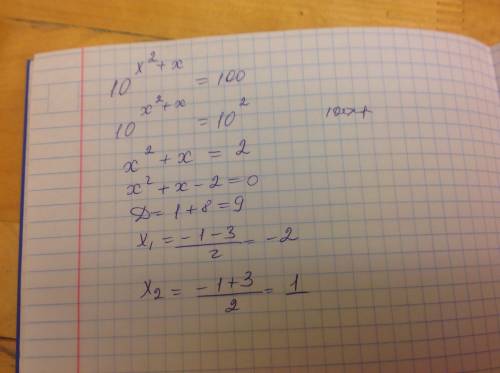 10^(x²+x) = 100
10^(x²+x) = 10²
x² + x = 2
x² + x - 2 = 0
D = 1 + 8 = 9
x₁ = (-1-3)/2 = -2
x₂ = (-1+3)/2 = 1